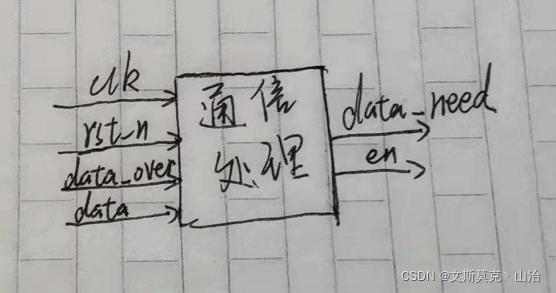 clk
rst_n
data_over
data
通信
处理
data_need
en
CSDN @文斯莫克丶山治